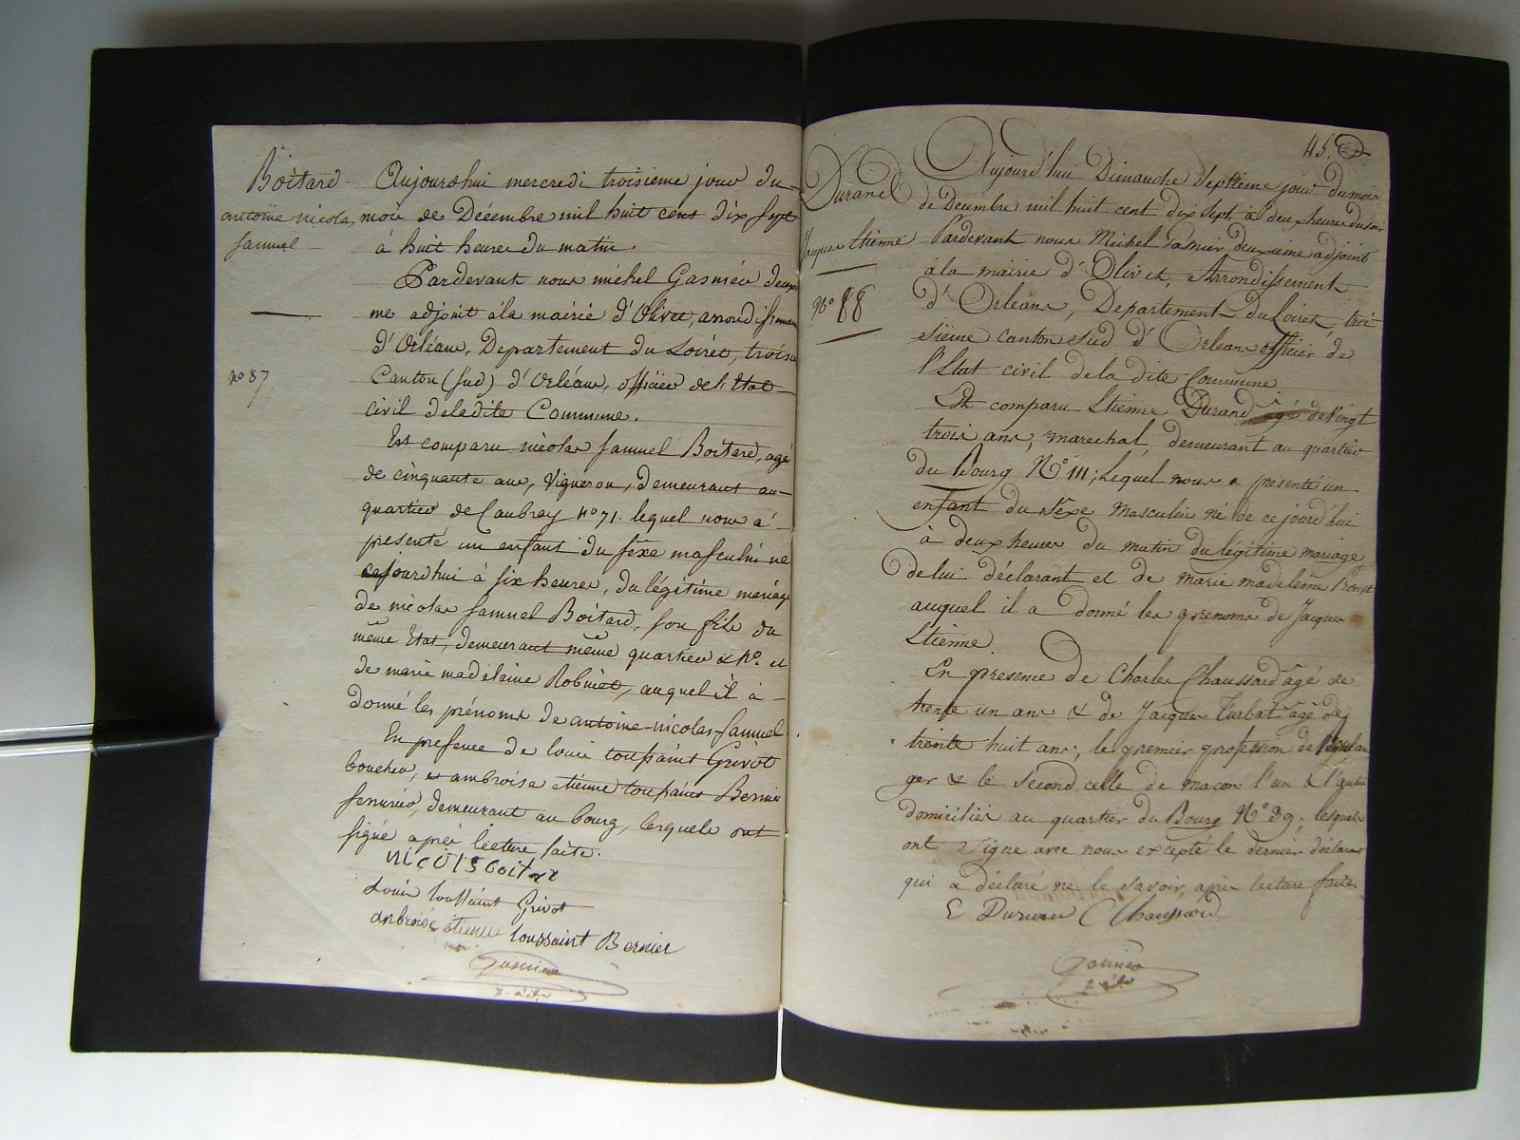 Boitard
antoine nicolas
samuel
no 87
Aujourdhui mercredi troisieme jour du
moi de Décembre mil huit cens dix sept
à huit heure du matin.
Pardevant nous michel Gasnier deuxie
me adjoint à la mairie d'Olivet, arrondissemen
d'Orléans, Departement du Loiret, troisie
Canton (sud) d'Orléans, officier de l'Etat
civil deladite Commune.
Est comparu nicolas samuel Boitard, agé
de cinquante ans, vigneron, demeurant au
quartier de Caubray no 71. lequel nous a
présenté un enfant du sexe masculin né
cejourdhui à six heures, du légitime mariage
de nicolas samuel Boitard, son fils du
même Etat, demeurant même quartier & no. et
de marie madeleine Robinet, auquel il à
donné les prénoms de antoine-nicolas-samuel
En presence de louis toussaint Grivot
boucher, et ambroise etienne toussaint Bernier
serrurier, demeurant au bourg, lesquels ont
signé après lecture faite.
Louis toussaint Grivot
ambroise étienne toussaint Bernier
Gasnier
45.
Durand
Jacques Etienne
No 88
Aujourd'hui Dimanche Septieme jour du mois
de Decembre mil huit cent dix sept à deux heures du soir
Pardevant nous Michel Gasnier deuxieme adjoint
à la mairie d'Olivet, Arrondissement
d'Orleans, Departement du Loiret, troi
sieme canton sud d'Orleans officier de
l'Etat civil de la dite Commune
Est comparu Etienne Durand agé de vingt
trois ans, marechal, demeurant au quartier
du Bourg No 111; Lequel nous a presenté un
enfant du Sexe Masculin né de ce jourd'hui
à deux heures du matin du légitime mariage
de lui déclarant et de marie madeleine
auquel il a donné les prenoms de Jacques
Etienne.
En presence de Charles Chaussard agé de
trente un ans & de Jacques Turbat agé de
trente huit ans; le premier profession de Boulan
ger & le Second celle de macon l'un & l'autre
domiciliés au quartier du Bourg No 39. lesquels
ont Signé avec nous excepté le dernier déclarant
qui a déclaré ne le Savoir, après lecture faite
E Durand C Chaussard
Gasnier